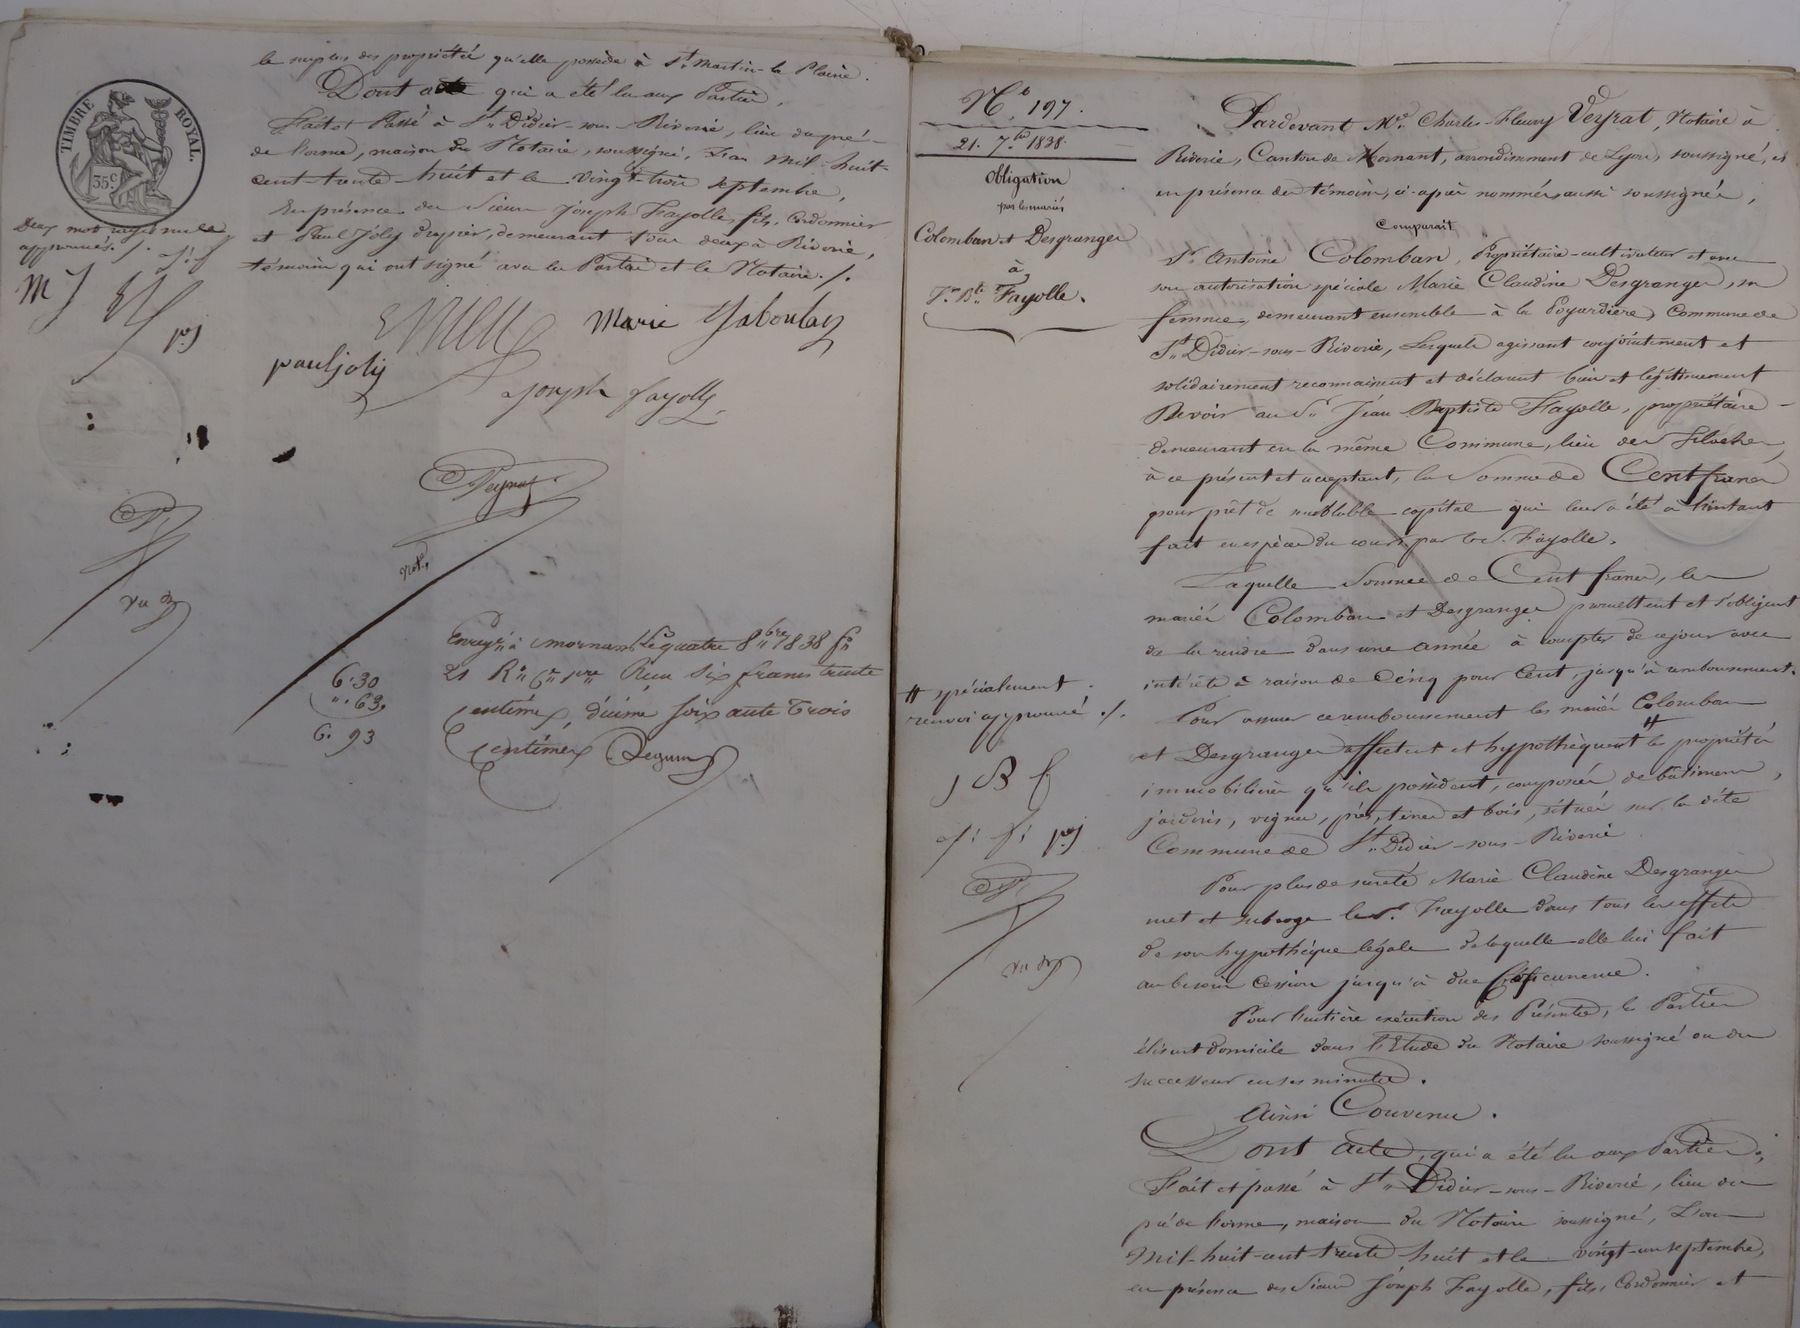 le surplus des propriétés qu'elle possède à St. Martin-la Plaine.
Dont acte qui a été lu aux Parties,
Fait et Passé à St. Didier-sous-Riverie, lieu du pré-
de l'orme, maison du Notaire, soussigné, L'an mil-huit-
cent-trente-huit et le vingt-trois septembre,
En présence des Sieurs Joseph Fayolle, fils, Cordonnier
et Paul Joly drapier, demeurant tous deux à Riverie,
témoins qui ont signé avec les Parties et le Notaire ./.
TIMBRE ROYAL.
35 c
Deux mots rayés nuls
approuvés ./. J: f
M J
pj
Marie Jaboulay
paul joly
joseph fayolle
Veyrat
Not.
vu
Enreg.é à mornant le quatre 8bre 1838 f.
21 R. 6 Reçu Six francs trente
centimes, décime soixante Trois
centimes
6. 30
". 63.
6. 93
N.o 197.
21. 7.bre 1838.
Obligation
par les mariés
Colomban et Desgranges
à
J.n B.te Fayolle.
Pardevant M.re Charles-Fleury Veyrat, Notaire à
Riverie, Canton de Mornant, arrondissement de Lyon, soussigné, et
en présence des témoins, ci-après nommés aussi soussignés,
Comparait
Sr. Antoine Colomban, Propriétaire-cultivateur et avec
son autorisation spéciale Marie Claudine Desgranges, sa
femme, demeurant ensemble à la Poyardière, Commune de
St. Didier-sous-Riverie, Lesquels agissant conjointement et
solidairement reconnaissent et déclarent bien et légitimement
Devoir au Sr. Jean Baptiste Fayolle, propriétaire-
demeurant en la même Commune, lieu des
à ce présent et acceptant, la Somme de Cent francs
pour prêt de semblable capital qui leur a été à l'instant
fait en espèces du cours par le S. Fayolle.
Laquelle Somme de Cent francs, les
mariés Colomban et Desgranges promettent et s'obligent
de lui rendre dans une année à compter de ce jour avec
intérêts à raison de Cinq pour Cent, jusqu'à remboursement.
Pour assurer ce remboursement les mariés Colomban
et Desgranges affectent et hypothèquent # les propriétés
immobilières qu'ils possèdent, composées de bâtimens,
jardins, vignes, prés, terres et bois, situées sur la dite
Commune de St. Didier-sous-Riverie
# spécialement
renvoi approuvé ./.
J B f
J: f: pj
vu
Pour plus de sureté Marie Claudine Desgranges
met et subroge le S. Fayolle dans tous les effets
de son hypothèque légale de laquelle elle lui fait
au besoin Cession jusqu'à due Concurrence.
Pour l'entière exécution des Présentes, les Parties
élisent domicile dans l'Etude du Notaire soussigné ou du
successeur en ses minutes.
Ainsi Convenu.
Dont acte, qui a été lu aux Parties,
Fait et passé à St. Didier-sous-Riverie, lieu du
pré de l'orme, maison du Notaire soussigné, L'an
Mil-huit-cent-trente-huit et le vingt-un septembre,
en présence des Sieurs Joseph Fayolle, fils, Cordonnier et